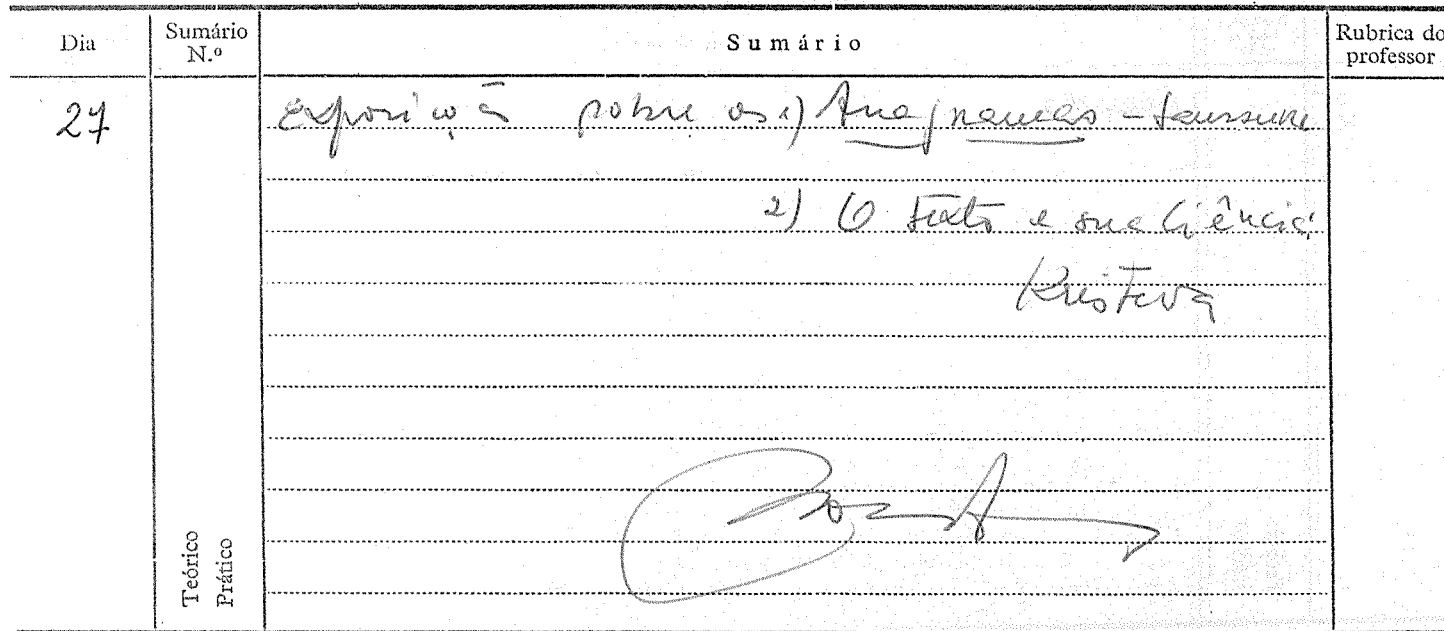 Dia Sumário N.º Sumário Rubrica do professor
27 Exposição sobre os 1) Anagramas - Saussure
2) O texto e sua ciência
Kristeva
Teórico
Prático